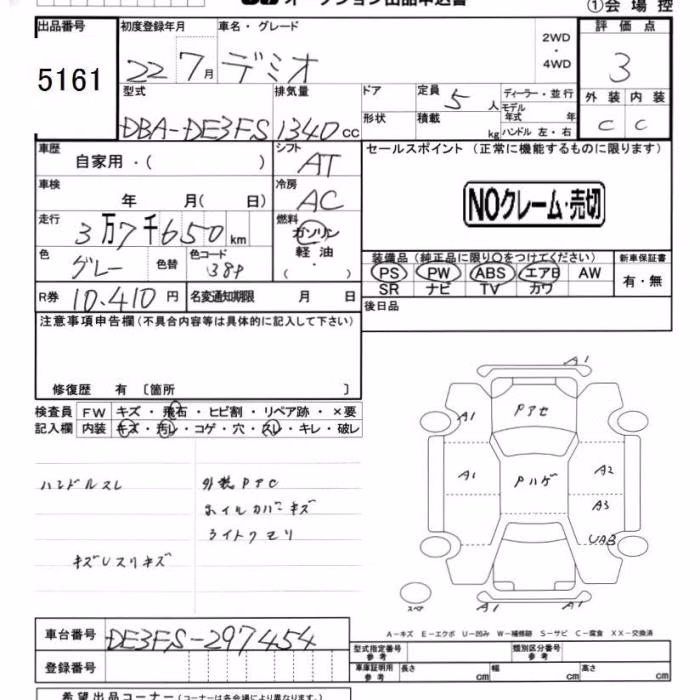 オークション出品申込書 ①会場控
出品番号 初度登録年月 車名・グレード 2WD・4WD 評価点
5161 22 7月 デミオ 3
型式 排気量 ドア 定員 5人 ディーラー・並行 外装 内装
DBA-DE3FS 1340cc 形状 積載 kg モデル年式 年 C C
ハンドル 左・右
車歴 自家用・( ) シフト AT セールスポイント (正常に機能するものに限ります)
車検 年 月( 日) 冷房 AC NOクレーム・売切
走行 3万7千650km 燃料 ガソリン
軽油
( ・ )
色 グレー 色替 色コード 38P 装備品(純正品に限り○をつけてください) 新車保証書
PS PW ABS エアB AW 有・無
SR ナビ TV カワ
R券 10,410円 名変通知期限 月 日 後日品
注意事項申告欄(不具合内容等は具体的に記入して下さい)
修復歴 有 〔箇所 〕
検査員 FW キズ・飛石・ヒビ割・リペア跡・×要
記入欄 内装 キズ・汚レ・コゲ・穴・スレ・キレ・破レ
ハンドルスレ 外装Pアセ
ホイルカバーキズ
ライトクモリ
キズUスリキズ
A1
A1 Pアセ
A1 Pハゲ A2
A3
UA3
スペア A1 A1
A-キズ E-エクボ U-凹み W-補修跡 S-サビ C-腐食 XX-交換済
車台番号 DE3FS-297454 型式指定番号 参考 類別区分番号 参考
登録番号 車庫証明用 参考 長さ cm 幅 cm 高さ cm
希望出品コーナー(コーナーは各会場により異なります。)